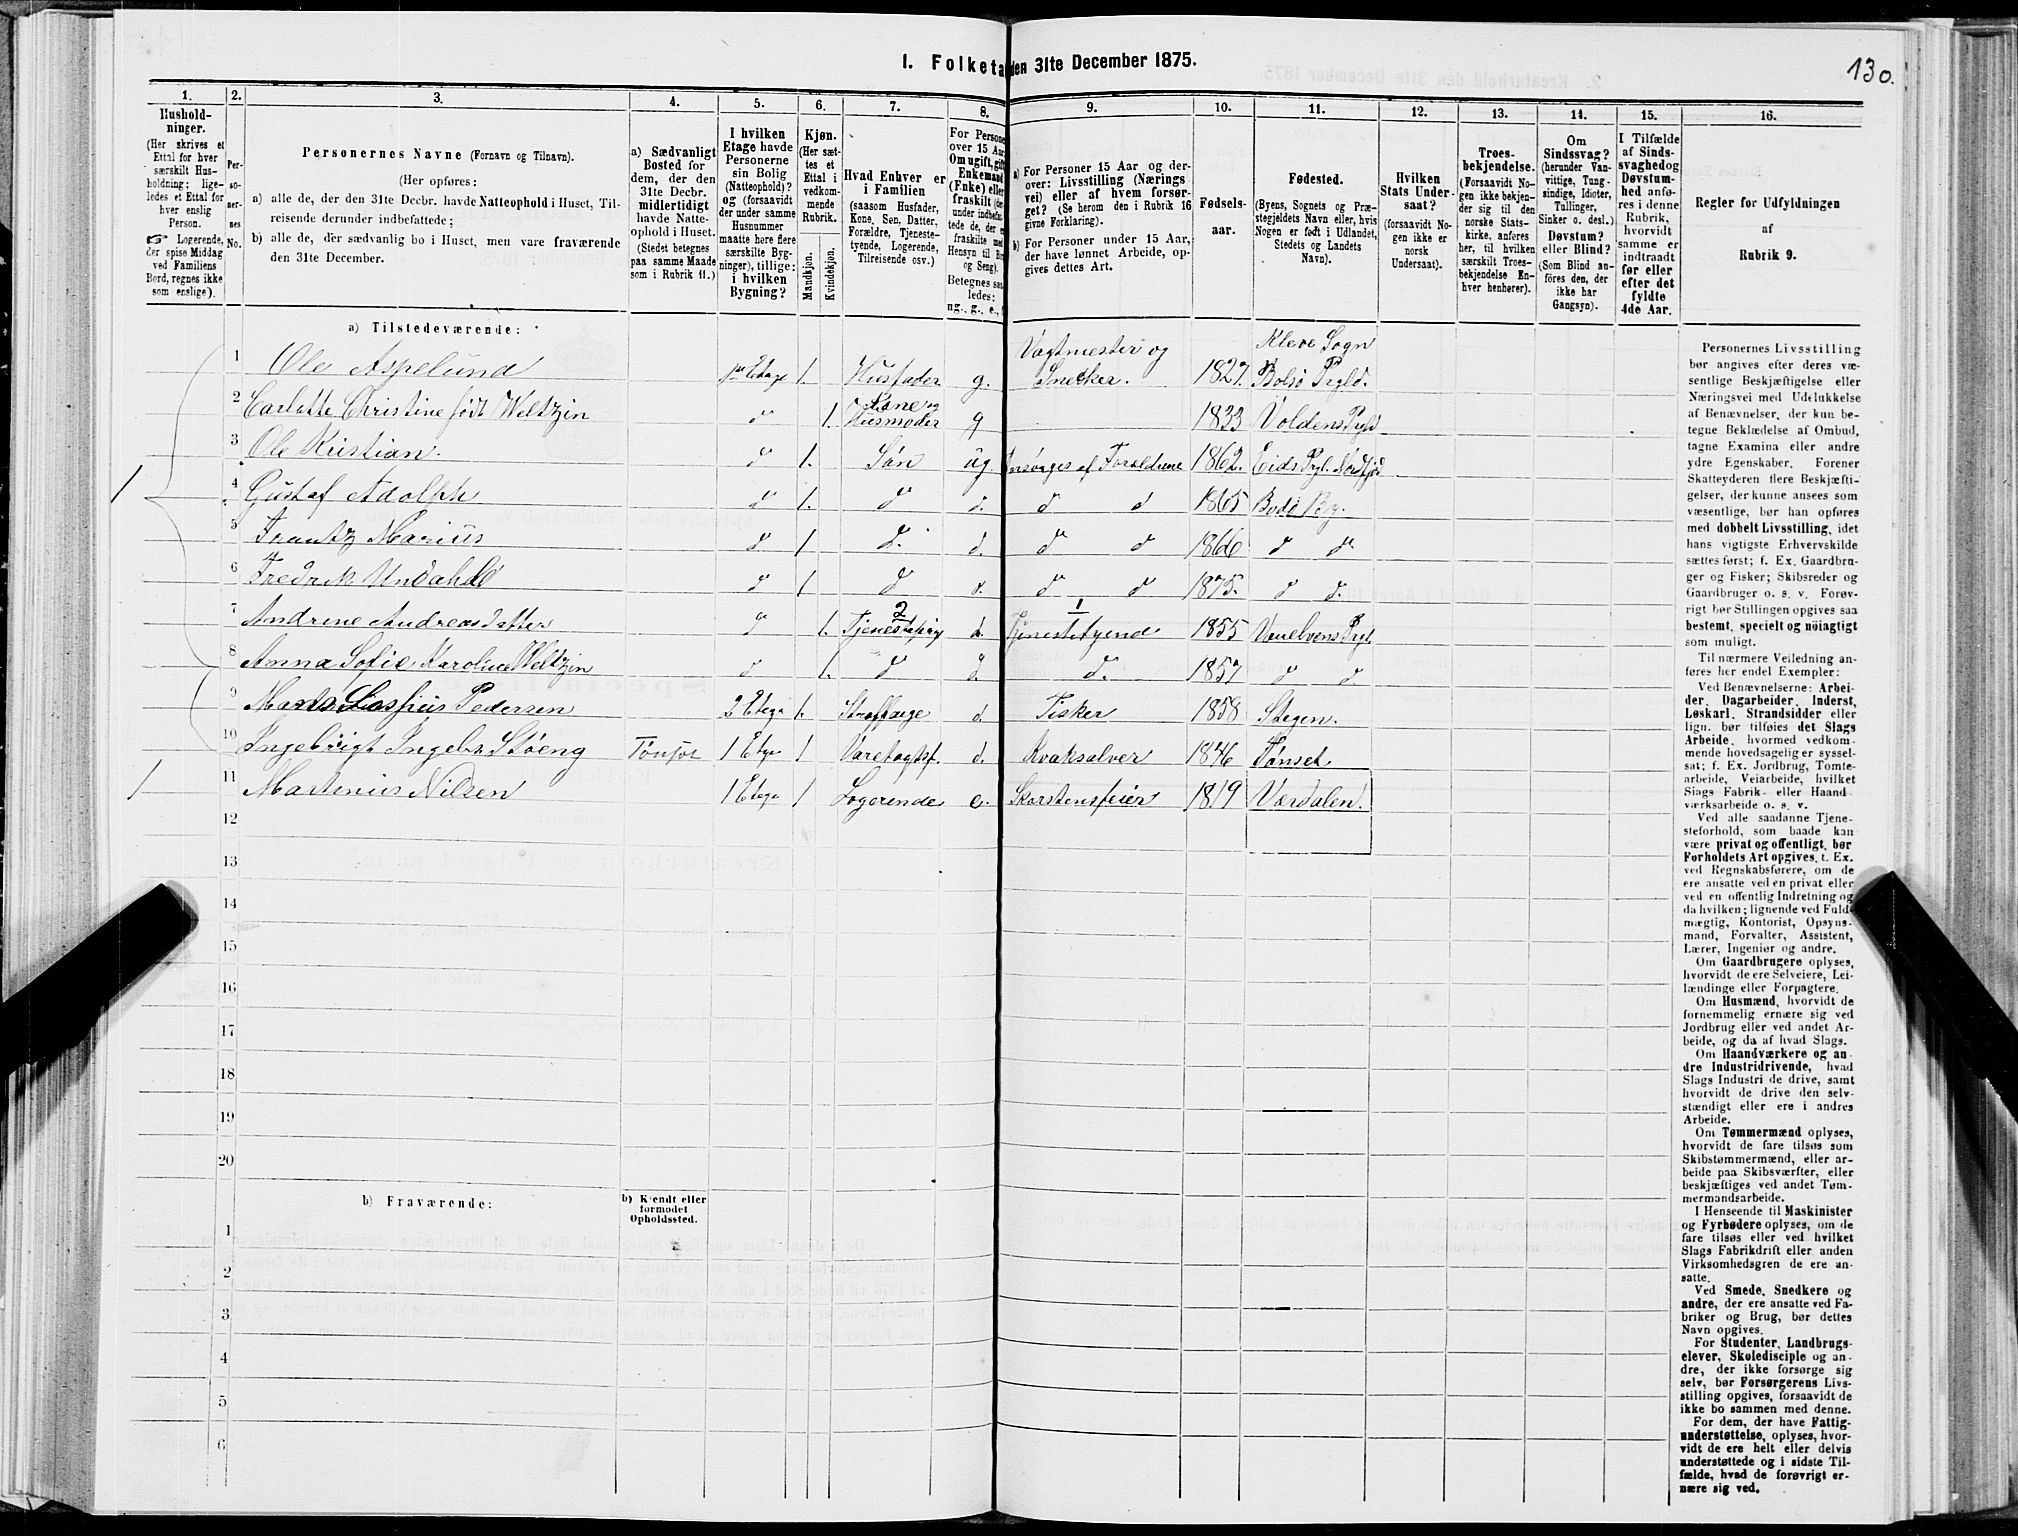 I. Folketæ den 31te December 1875.
130.
1.
2.
3.
4.
5.
6.
7.
8.
9.
10.
11.
12.
13.
14.
15.
16.
Hushold-
ninger.
(Her skrives et
Ettal for hver
særskilt Hus-
holdning; lige-
ledes et Ettal for
hver enslig
Person.
☞ Logerende,
der spise Middag
ved Familiens
Bord, regnes ikke
som enslige).
Per-
so-
ner-
nes
No.
Personernes Navne (Fornavn og Tilnavn).
(Her opføres:
a) alle de, der den 31te Decbr. havde Natteophold i Huset, Til-
reisende derunder indbefattede;
b) alle de, der sædvanlig bo i Huset, men vare fraværende
den 31te December.
a) Sædvanligt
Bosted for
dem, der den
31te Decbr.
midlertidigt
havde Natte-
ophold i Huset.
(Stedet betegnes
paa samme Maade
som i Rubrik 11.)
I hvilken
Etage havde
Personerne
sin Bolig
(Natteophold)?
og (forsaavidt
der under samme
Husnummer
maatte høre flere
særskilte Byg-
ninger), tillige:
i hvilken
Bygning?
Kjøn.
(Her sæt-
tes et
Ettal i
vedkom-
mende
Rubrik.
Mandkjøn.
Kvindekjøn.
Hvad Enhver er
i Familien
(saasom Husfader,
Kone, Søn, Datter,
Forældre, Tjeneste-
tyende, Logerende,
Tilreisende osv.)
For Persone
over 15 Aar
Om ugift, gift
Enkemand
(Enke) elle
fraskilt (de
under indbefat
tede de, der e
fraskilte med
Hensyn til Bo
og Seng).
Betegnes saa
ledes:
ug., g., e., f
a) For Personer 15 Aar og der-
over: Livsstilling (Nærings
vei) eller af hvem forsør-
get? (Se herom den i Rubrik 16
givne Forklaring).
b) For Personer under 15 Aar,
der have lønnet Arbeide, op-
gives dettes Art.
Fødsels-
aar.
Fødested.
(Byens, Sognets og Præ-
stegjeldets Navn eller, hvis
Nogen er født i Udlandet,
Stedets og Landets
Navn).
Hvilken
Stats Under-
saat?
(forsaavidt No-
gen ikke er
norsk
Undersaat).
Troes-
bekjendelse.
(Forsaavidt No-
gen ikke bekjen-
der sig til den
norske Stats-
kirke, anføres
her, til hvilken
særskilt Troes-
bekjendelse En-
hver henhører).
Om
Sindssvag?
(herunder Van-
vittige, Tung-
sindige, Idioter,
Tullinger,
Sinker o. desl.)
Døvstum?
eller Blind?
(Som Blind an-
føres den, der
ikke har
Gangsyn).
I Tilfælde
af Sinds-
svaghed og
Døvstum-
hed anfø-
res i denne
Rubrik,
hvorvidt
samme er
indtraadt
før eller
efter det
fyldte
4de Aar.
Regler for Udfyldningen
af
Rubrik 9.
a) Tilstedeværende:
1 Ole Aspelund 1ste Etage 1. Husfader g. Vagtmester og Snedker. 1827. Kleve Sogn Bolsø Prgld.
2 Carlotte Christine født Weltzin d 1. Kone og Husmoder g 1833 Voldens Prgld
3 Ole Kristian. d 1. Søn ug Forsørges af Forældrene 1862. Eids Prgl. Nordfjord
1
4 Gustaf Adolph d 1. d d. d d 1865 Bodø By.
5 Frantz Marius d 1 d. d. d d 1866 d d
6 Fredrik Undahl d 1 d d. d d 1875. d d.
7 Andrine Andreasdatter d 1. 2 Tjenestepige d. 1 Tjenestetyende 1855 Vanelvens Prgl.
8 Anna Sofie Karoline Weltzin d 1. d d. d. 1857 d d
9 Pedersen 2 Etage 1. Straffange d. Fisker 1858 Stegen.
10 Ingebrigt Ingebr. Støeng Tønset 1 Etage 1 Varetægtsf. d. Kvaksalver 1846 Tønset
1 11 Martinius Nilsen 1 Etage 1 Logerende e. Skorstensfeier 1819 Værdalen.
12
13
14
15
16
17
18
19
20
b) Fraværende:
b) Kjendt eller
formodet
Opholdssted.
1
2
3
4
5
6
Personernes Livsstilling
bør angives efter deres væ-
sentlige Beskjæftigelse eller
Næringsvei med Udelukkelse
af Benævnelser, der kun be-
tegne Beklædelse af Ombud,
tagne Examina eller andre
ydre Egenskaber. Forener
Skatteyderen flere Beskjæfti-
gelser, der kunne ansees som
væsentlige, bør han opføres
med dobbelt Livsstilling, idet
hans vigtigste Erhvervskilde
sættes først; f. Ex. Gaardbru-
ger og Fisker; Skibsreder og
Gaardbruger o. s. v. Forøv-
rigt bør Stillingen opgives saa
bestemt, specielt og nöiagtigt
som muligt.
Til nærmere Veiledning an-
føres her endel Exempler:
Ved Benævnelserne: Arbei-
der, Dagarbeider, Inderst,
Løskarl, Strandsidder eller
lign. bør tilføies det Slags
Arbeide, hvormed vedkom-
mende hovedsagelig er syssel-
sat; f. Ex. Jordbrug, Tomte-
arbeide, Veiarbeide, hvilket
Slags Fabrik- eller Haand
værksarbeide o. s. v.
Ved alle saadanne Tjene-
steforhold, som baade kan
være privat og offentligt, bør
Forholdets Art opgives, t. Ex.
ved Regnskabsførere, om de
ere ansatte ved en privat eller
ved en offentlig Indretning og
da hvilken; lignende ved Fuld-
mægtig, Kontorist, Opsyns-
mand, Forvalter, Assistent,
Lærer, Ingeniør og andre.
Om Gaardbrugere oplyses,
hvorvidt de ere Selveiere, Lei-
lændinge eller Forpagtere.
Om Husmænd, hvorvidt de
fornemmelig ernære sig ved
Jordbrug eller ved andet Ar-
beide, og da af hvad Slags.
Om Haandværkere og an-
dre Industridrivende, hvad
Slags Industri de drive, samt
hvorvidt de drive den selv-
stændigt eller ere i andres
Arbeide.
Om Tømmermænd oplyses,
hvorvidt de fare tilsøs som
Skibstømmermænd, eller ar-
beide paa Skibsværfter, eller
beskjæftiges ved andet Tøm-
mermandsarbeide.
I Henseende til Maskinister
og Fyrbødere oplyses, om de
fare tilsøs eller ved hvilket
Slags Fabrikdrift eller anden
Virksomhedsgren de ere an-
satte.
Ved Smede, Snedkere og
andre, der ere ansatte ved Fa-
briker og Brug, bør dettes
Navn opgives.
For Studenter, Landbrugs-
elever, Skoledisciple og an-
dre, der ikke forsørge sig
selv, bør Forsørgerens Livs-
stilling opgives, forsaavidt de
ikke bo sammen med denne.
For dem, der have Fattig-
understøttelse, oplyses, hvor-
vidt de ere helt eller delvis
understøttede og i sidste Til-
fælde, hvad de forøvrigt er-
nære sig ved.